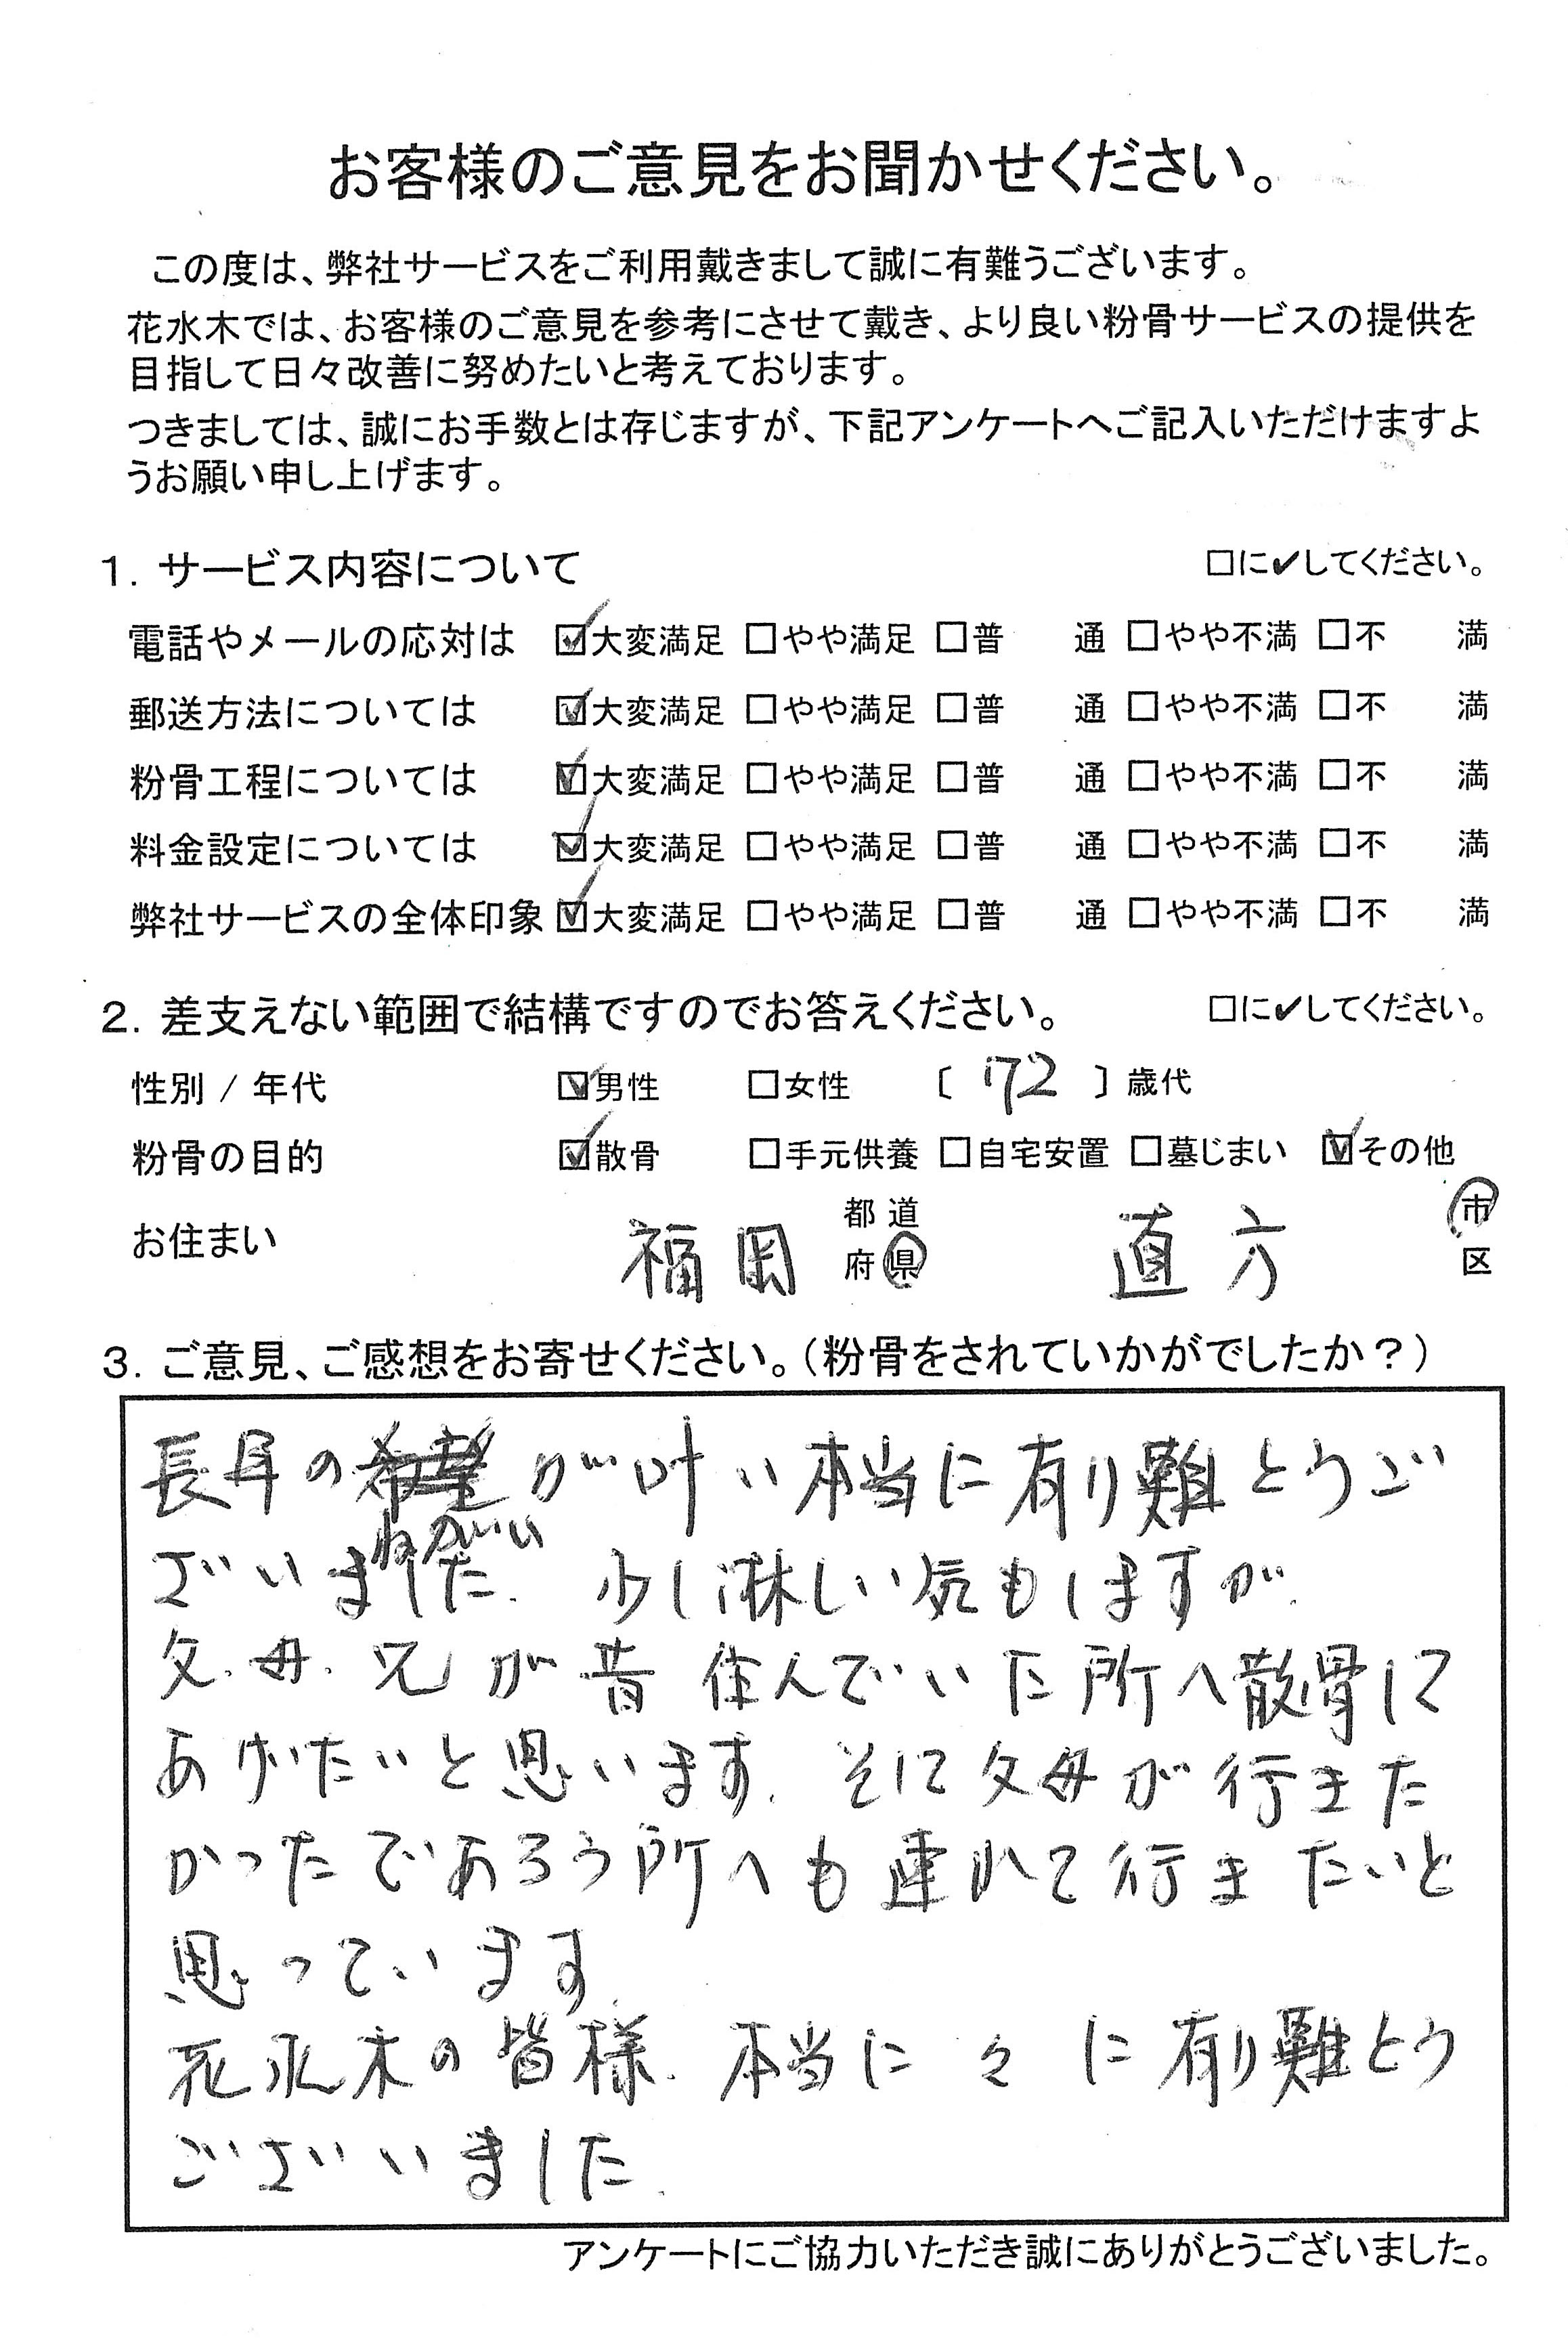 お客様のご意見をお聞かせください。
この度は、弊社サービスをご利用戴きまして誠に有難うございます。
花水木では、お客様のご意見を参考にさせて戴き、より良い粉骨サービスの提供を
目指して日々改善に努めたいと考えております。
つきましては、誠にお手数とは存じますが、下記アンケートへご記入いただけますよ
うお願い申し上げます。
1. サービス内容について □に✔してください。
電話やメールの応対は ☑大変満足 □やや満足 □普 通 □やや不満 □不 満
郵送方法については ☑大変満足 □やや満足 □普 通 □やや不満 □不 満
粉骨工程については ☑大変満足 □やや満足 □普 通 □やや不満 □不 満
料金設定については ☑大変満足 □やや満足 □普 通 □やや不満 □不 満
弊社サービスの全体印象 ☑大変満足 □やや満足 □普 通 □やや不満 □不 満
2. 差支えない範囲で結構ですのでお答えください。 □に✔してください。
性別 / 年代 ☑男性 □女性 〔 72 〕歳代
粉骨の目的 ☑散骨 □手元供養 □自宅安置 □墓じまい ☑その他
お住まい 福岡 都道府県 直方 市区
3. ご意見、ご感想をお寄せください。(粉骨をされていかがでしたか?)
長年の希望が叶い本当に有り難とうご
ねがい
ざいました. 少し淋しい気もしますが.
父.母.兄が昔住んでいた所へ散骨して
あげたいと思います. そして父母が行きた
かったであろう所へも連れて行きたいと
思っています
花水木の皆様. 本当に々に有り難とう
ございました.
アンケートにご協力いただき誠にありがとうございました。